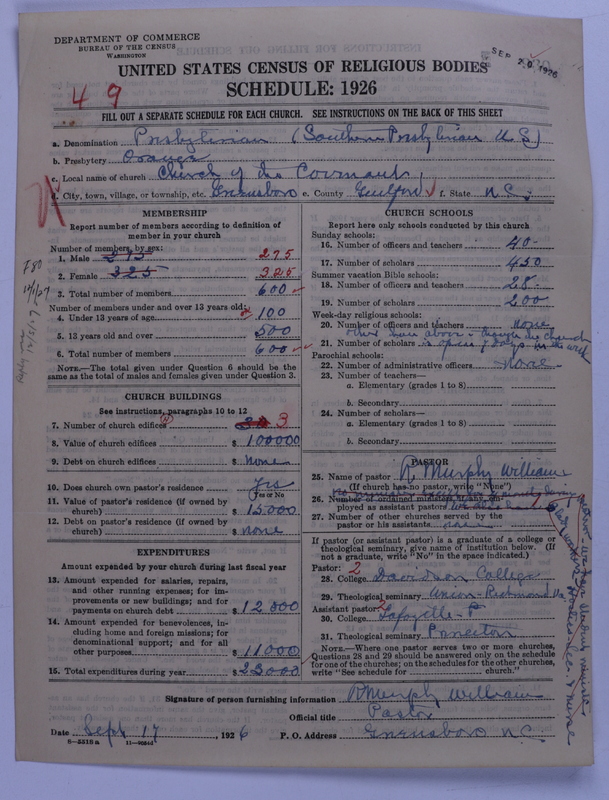 DEPARTMENT OF COMMERCE
BUREAU OF THE CENSUS
WASHINGTON
SEP 20 1926
UNITED STATES CENSUS OF RELIGIOUS BODIES
SCHEDULE: 1926
4 9
FILL OUT A SEPARATE SCHEDULE FOR EACH CHURCH. SEE INSTRUCTIONS ON THE BACK OF THIS SHEET
a. Denomination Presbyterian (Southern Presbyterian U S)
b. Presbytery Orange
c. Local name of church Church of the Covenant
d. City, town, village, or township, etc. Greensboro e. County Guilford f. State N.C.
MEMBERSHIP
Report number of members according to definition of member in your church
Number of members by sex:
1. Male 275 275
2. Female 325 325
3. Total number of members 600
Number of members under and over 13 years old:
4. Under 13 years of age 100
5. 13 years old and over 500
6. Total number of members 600
NOTE.—The total given under Question 6 should be the same as the total of males and females given under Question 3.
CHURCH BUILDINGS
See instructions, paragraphs 10 to 12
7. Number of church edifices 3
8. Value of church edifices $ 100000
9. Debt on church edifices $ none
10. Does church own pastor's residence? Yes
Yes or No
11. Value of pastor's residence (if owned by church) $ 15000
12. Debt on pastor's residence (if owned by church) $ none
EXPENDITURES
Amount expended by your church during last fiscal year
13. Amount expended for salaries, repairs, and other running expenses; for improvements or new buildings; and for payments on church debt $ 12000
14. Amount expended for benevolences, including home and foreign missions; for denominational support; and for all other purposes $ 11000
15. Total expenditures during year $ 23000
CHURCH SCHOOLS
Report here only schools conducted by this church
Sunday schools:
16. Number of officers and teachers 40
17. Number of scholars 450
Summer vacation Bible schools:
18. Number of officers and teachers 28
19. Number of scholars 200
Week-day religious schools:
20. Number of officers and teachers none
other than above
21. Number of scholars
Parochial schools:
22. Number of administrative officers none
23. Number of teachers—
a. Elementary (grades 1 to 8)
b. Secondary
24. Number of scholars—
a. Elementary (grades 1 to 8)
b. Secondary
PASTOR
25. Name of pastor R Murphy Williams
(If church has no pastor, write "None")
26. Number of ordained ministers employed as assistant pastors
27. Number of other churches served by the pastor or his assistants none
If pastor (or assistant pastor) is a graduate of a college or theological seminary, give name of institution below. (If not a graduate, write "No" in the space indicated.)
Pastor: 2
28. College Davidson College
29. Theological seminary Union-Richmond Va
Assistant pastor: 2
30. College Lafayette-P
31. Theological seminary Princeton
NOTE.—Where one pastor serves two or more churches, Questions 28 and 29 should be answered only on the schedule for one of the churches; on the schedules for the other churches, write "See schedule for church."
Signature of person furnishing information R Murphy Williams
Official title Pastor
Date Sept 17, 1926 P. O. Address Greensboro N.C.
8—5518a 11—9054d